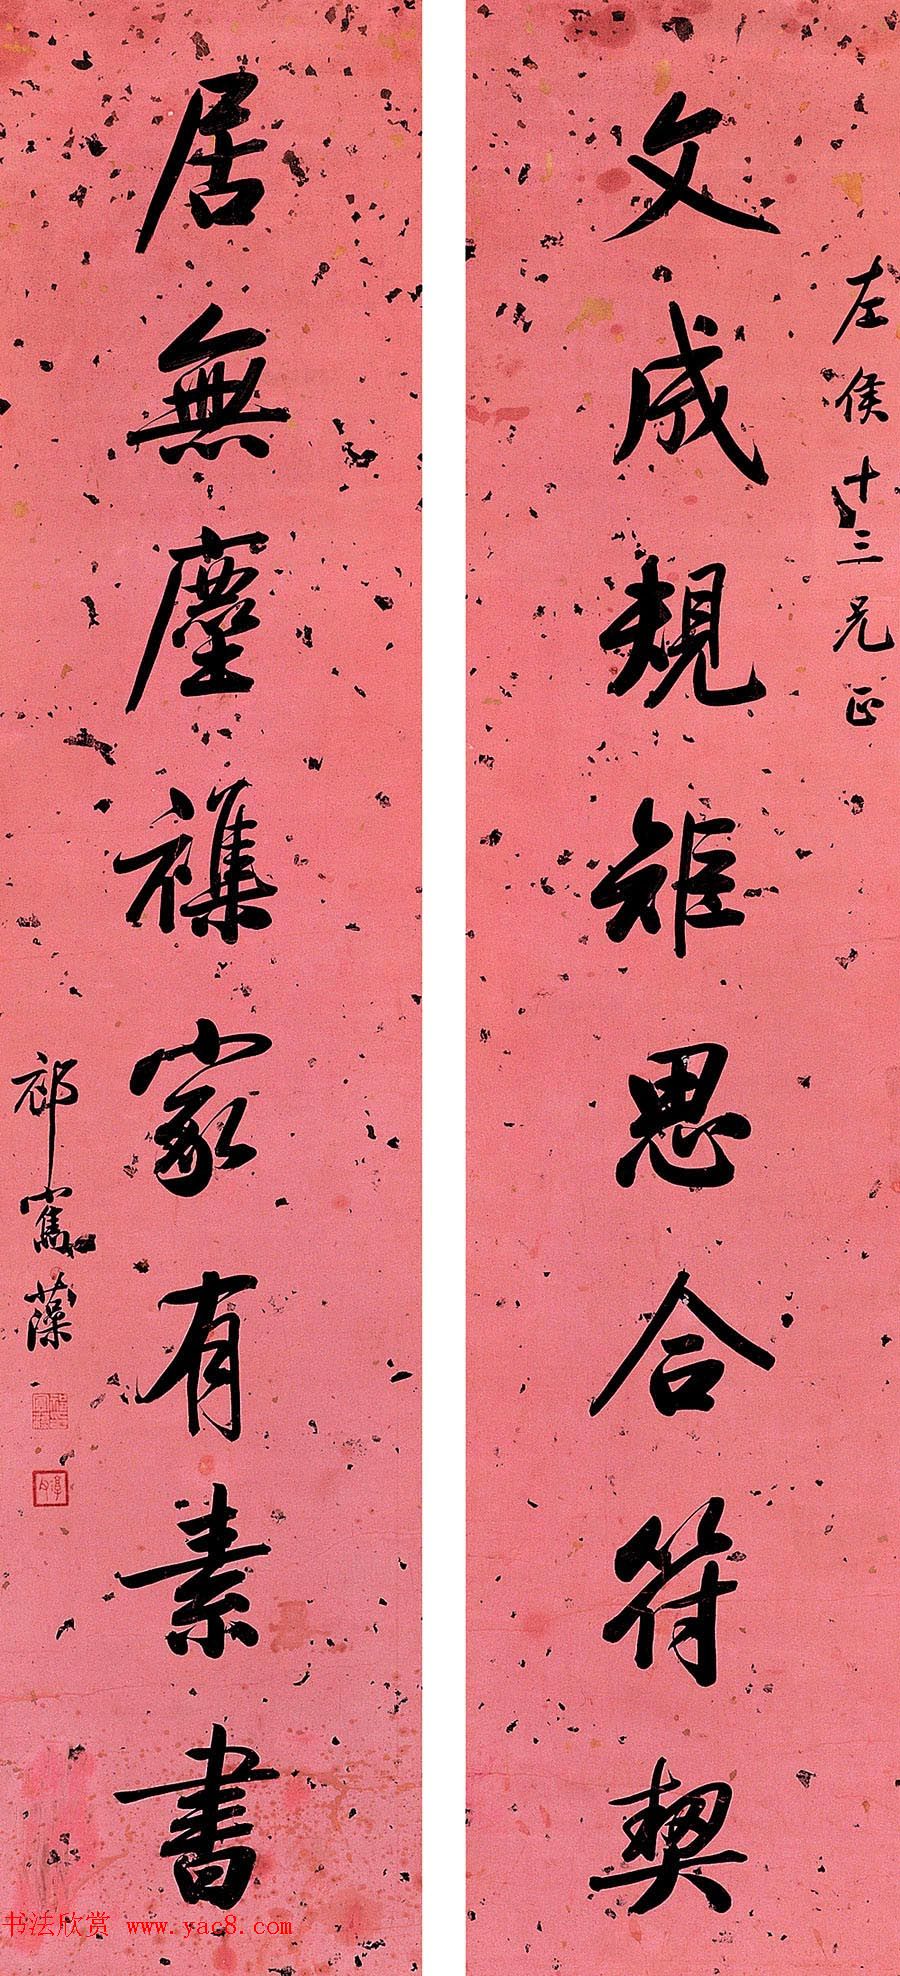 左侯十三兄正
文成規矩思合符契
居無塵襍家有素書
祁寯藻
书法欣赏 www.yac8.com